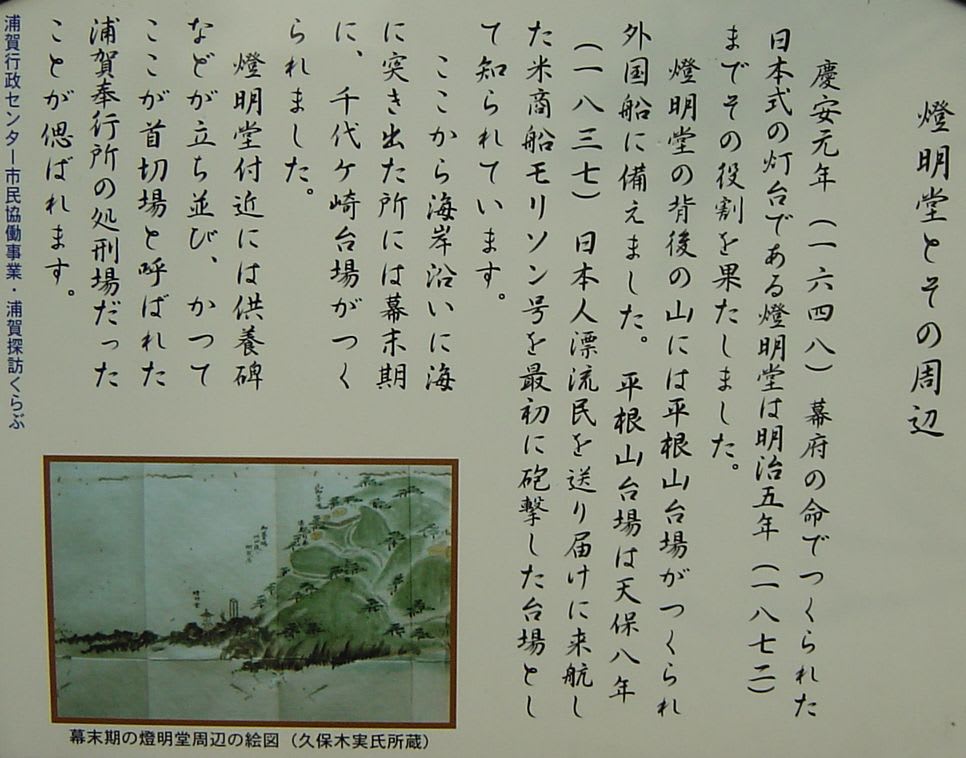 燈明堂とその周辺
慶安元年（一六四八）幕府の命でつくられた
日本式の灯台である燈明堂は明治五年（一八七二）
までその役割を果たしました。
燈明堂の背後の山には平根山台場がつくられ
外国船に備えました。平根山台場は天保八年
（一八三七）日本人漂流民を送り届けに来航し
た米商船モリソン号を最初に砲撃した台場とし
て知られています。
ここから海岸沿いに海
に突き出た所には幕末期
に、千代ケ崎台場がつく
られました。
燈明堂付近には供養碑
などが立ち並び、かつて
ここが首切場と呼ばれた
浦賀奉行所の処刑場だった
ことが偲ばれます。
浦賀行政センター市民協働事業・浦賀探訪くらぶ
幕末期の燈明堂周辺の絵図（久保木実氏所蔵）